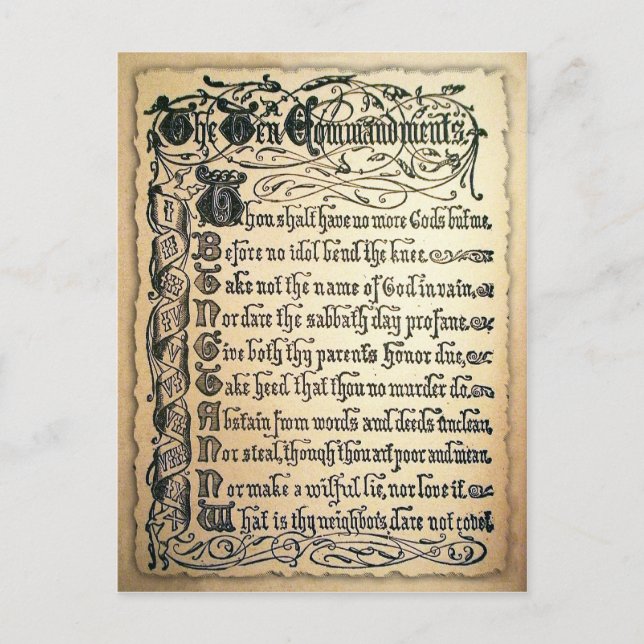 The Ten Commandments.
I Thou shalt have no more Gods but me.
II Before no idol bend the knee.
III Take not the name of God in vain,
IV Nor dare the sabbath day profane.
V Give both thy parents honor due,
VI Take heed that thou no murder do.
VII Abstain from words and deeds unclean,
VIII Nor steal, though thou art poor and mean.
IX Nor make a wilful lie, nor love it.
X What is thy neighbors, dare not covet.